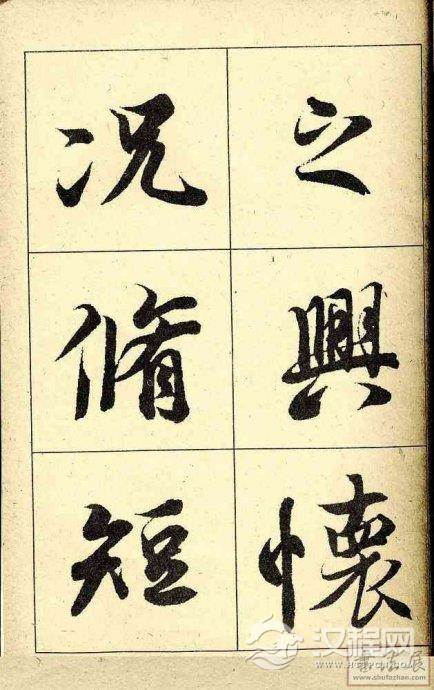 之興懷
况脩短
汉程网
www.shufazhan.com